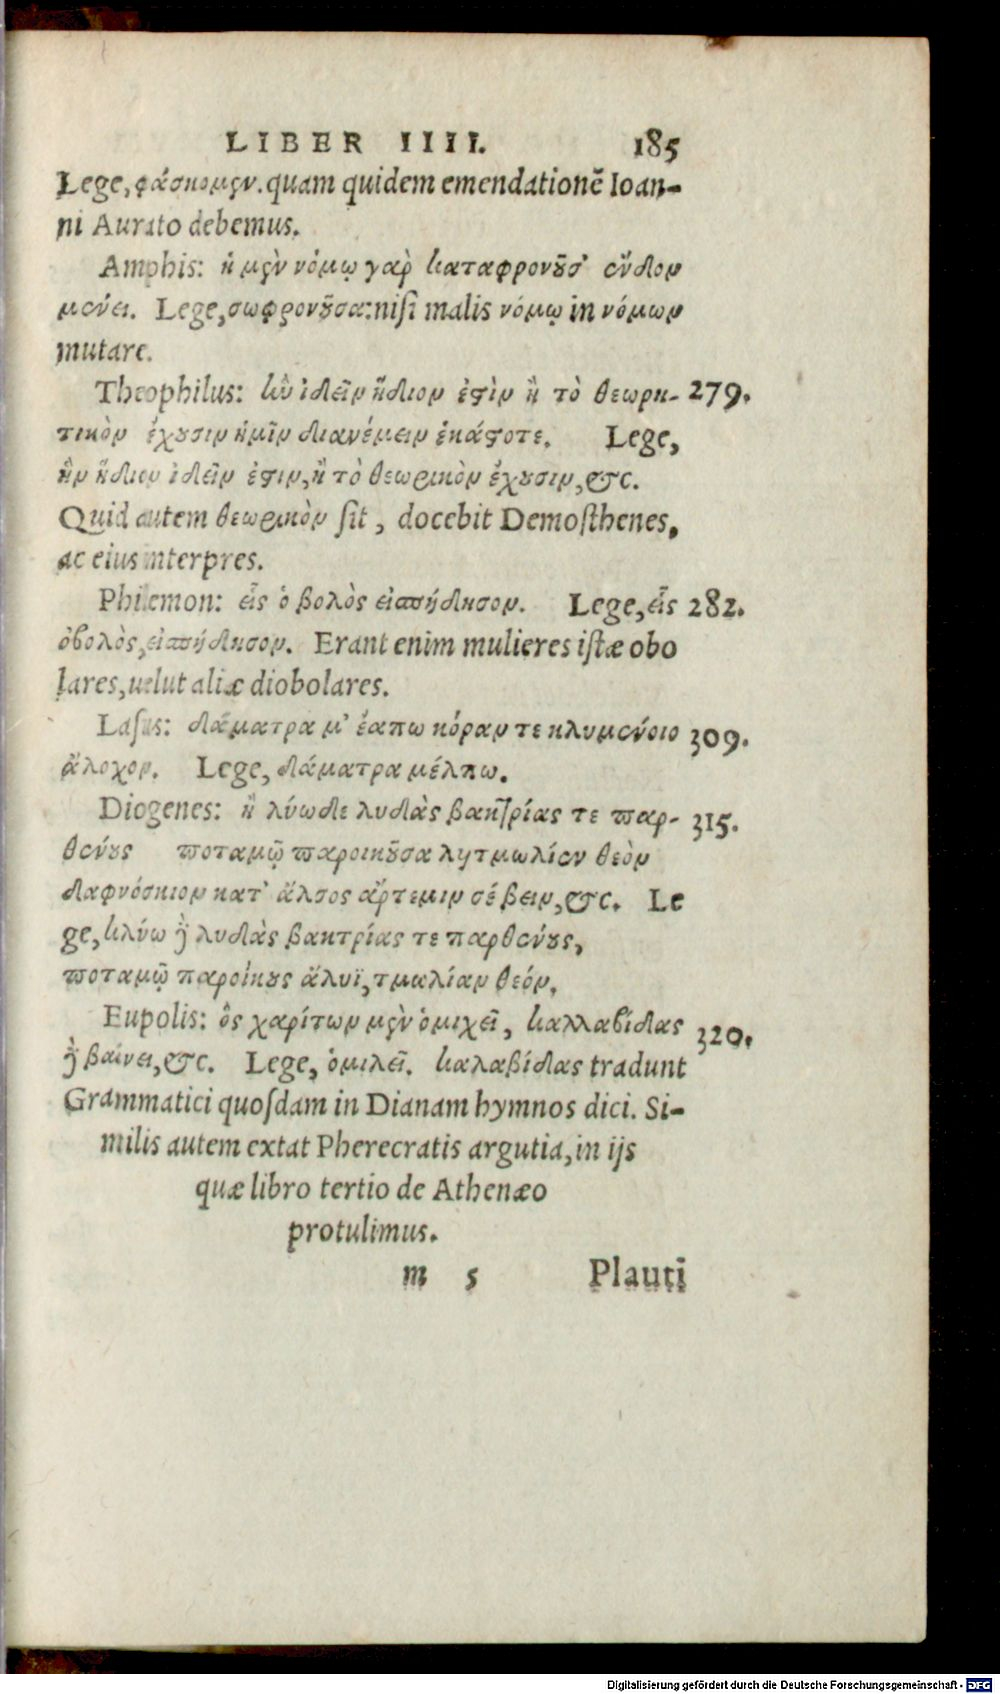 LIBER IIII. 185
Lege, φάσκομεν. quam quidem emendationẽ Ioan-
ni Aurato debemus.
Amphis: ἡ μὲν νόμῳ γὰρ καταφρονοῦσ' ἔνδον
μένει. Lege, σωφρονοῦσα: nisi malis νόμῳ in νόμων
mutare.
Theophilus: κὢ ἰδεῖν ἥδιον ἐστὶν ἢ τὸ θεωρη- 279.
τικὸν ἐχουσιν ἡμῖν διανέμειν ἑκάστοτε. Lege,
ἢν ἥδιον ἰδεῖν ἐστιν, ἢ τὸ θεωρικὸν ἔχουσιν, &c.
Quid autem θεωρικὸν sit, docebit Demosthenes,
ac eius interpres.
Philemon: εἷς ὁ βολὸς εἰσπήδησον. Lege, εἷς 282.
ὀβολὸς, εἰσπήδησον. Erant enim mulieres istæ obo
lares, uelut aliæ diobolares.
Lasus: δάματρα μ' ἔαπω κόραν τε κλυμένοιο 309.
ἄλοχον. Lege, δάματρα μέλπω.
Diogenes: ἢ λύωδε λυδὰς βακτρίας τε παρ- 315.
θένους ποταμῷ παροικοῦσα λητμωλίεν θεὸν
δαφνόσκιον κατ' ἄλσος ἄρτεμιν σέβειν, &c. Le
ge, κλύω δὲ λυδὰς βακτρίας τε παρθένους,
ποταμῷ παροίκους ἅλυϊ, τμωλίαν θεόν.
Eupolis: ὃς χαρίτων μὲν ὀμιχεῖ, καλλαβίδας 320.
δὲ βαίνει, &c. Lege, ὁμιλεῖ. καλαβίδας tradunt
Grammatici quosdam in Dianam hymnos dici. Si-
milis autem extat Pherecratis argutia, in ijs
quæ libro tertio de Athenæo
protulimus.
m 5 Plauti
Digitalisierung gefördert durch die Deutsche Forschungsgemeinschaft - DFG